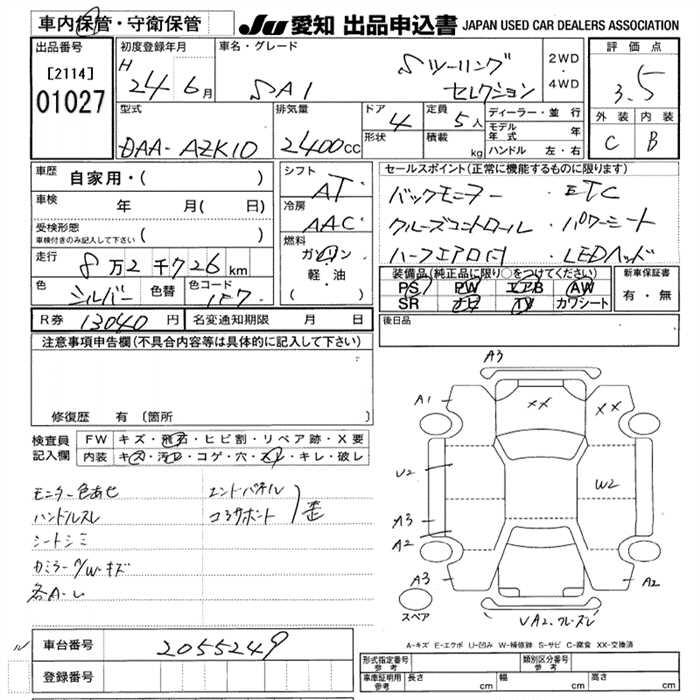 車内保管・守衛保管 JU 愛知 出品申込書 JAPAN USED CAR DEALERS ASSOCIATION
出品番号
[2114]
01027
初度登録年月
H 24 6月
車名・グレード
SAI Sツーリング
セレクション
2WD
・
4WD
評価点
3.5
外装 内装
C B
型式
DAA-AZK10
排気量
2400cc
ドア
4
形状
定員
5人
積載 kg
ディーラー・並行
モデル年式 年
ハンドル 左・右
車歴 自家用・( )
車検 年 月( 日)
受検形態
車検付きのみ記入して下さい ( )
走行 8万2千726km
色 シルバー 色替 色コード 1F7
シフト AT
冷房 AAC
燃料
ガソリン
・
軽油
( )
R券 13040円 名変通知期限 月 日
セールスポイント(正常に機能するものに限ります)
バックモニター ・ETC
クルーズコントロール ・パワーシート
ハーフエアロ付 ・LEDヘッド
装備品(純正品に限り○をつけてください)
PS PW エアB AW
SR ナビ TV カワシート
新車保証書
有・無
後日品
注意事項申告欄(不具合内容等は具体的に記入して下さい)
修復歴 有 〔箇所 〕
検査員記入欄
FW キズ・飛石・ヒビ割・リペア跡・X要
内装 キズ・汚レ・コゲ・穴・スレ・キレ・破レ
モニター色あせ
ハンドルスレ
シートシミ
カミラーウW・キズ
各A・レ
エンドパネル
コアサポート 歪
A3
A1
XX
XX
U2
W2
A3
A2
A3
A2
スペア
VA2.ワレ・スレ
A-キズ E-エクボ U-凹み W-補修跡 S-サビ C-腐食 XX-交換済
車台番号 2055249
登録番号
形式指定番号
参考
類別区分番号
参考
車庫証明用
参考
長さ cm 幅 cm 高さ cm